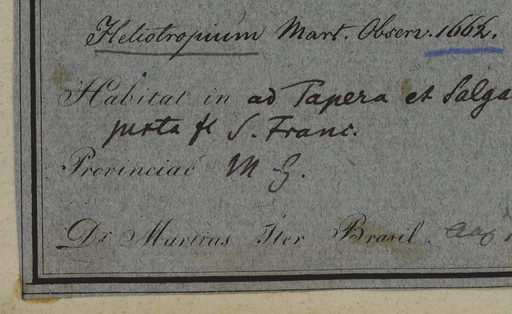 Heliotropium Mart. Observ. 1662.
Habitat in ad Tapera et Salga
juxta fl S. Franc.
Provinciae M G.
Dr Martius Iter Brasil. Aug